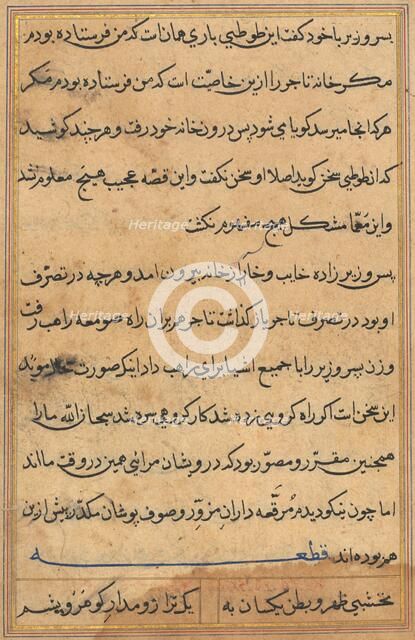 پسر وزیر با خود گفت این طوطی باری همان است که من فرستاده بودم
مگر خانه تاجر را از این خاصیّت است که من فرستاده بودم مگر
هر که انجا میرسد گویا می شود پس درون خانه خود رفت و هر چند کوشید
که از طوطی سخن گوید اصلا او سخن نگفت و این قصه عجیب هیچ معلوم نشد
و این معمّا مشکل هیچ مفهوم نکشت
پس وزیر زاده خایب و خاسر از خانه بیرون امد و هر چه در تصرّف
او بود در تصرف تاجر باز گذاشت تاجر هم بران راه صومعه راهب رفت
و زن پسر وزیر را با جمیع اشیا برای راهب داد اینک صورت
این سخن است اکر راه کروهی زده شد کار کروهی سره شد سبحان الله مارا
همچنین مقرّر و مصوّر بود که درویشان مرائی همین در وقت ما اند
اما چون بنکودیدم مرقّعه داران مزوّر و صوف پوشان مکدّر پیش ازین
هم بوده اند قطعه
نخشبی ظهر و بطن یکسان به
یک ترازو مدار کو هر و پشم
Heritage
Heritage
Heritage
Heritage
Images
Images
Images
Images